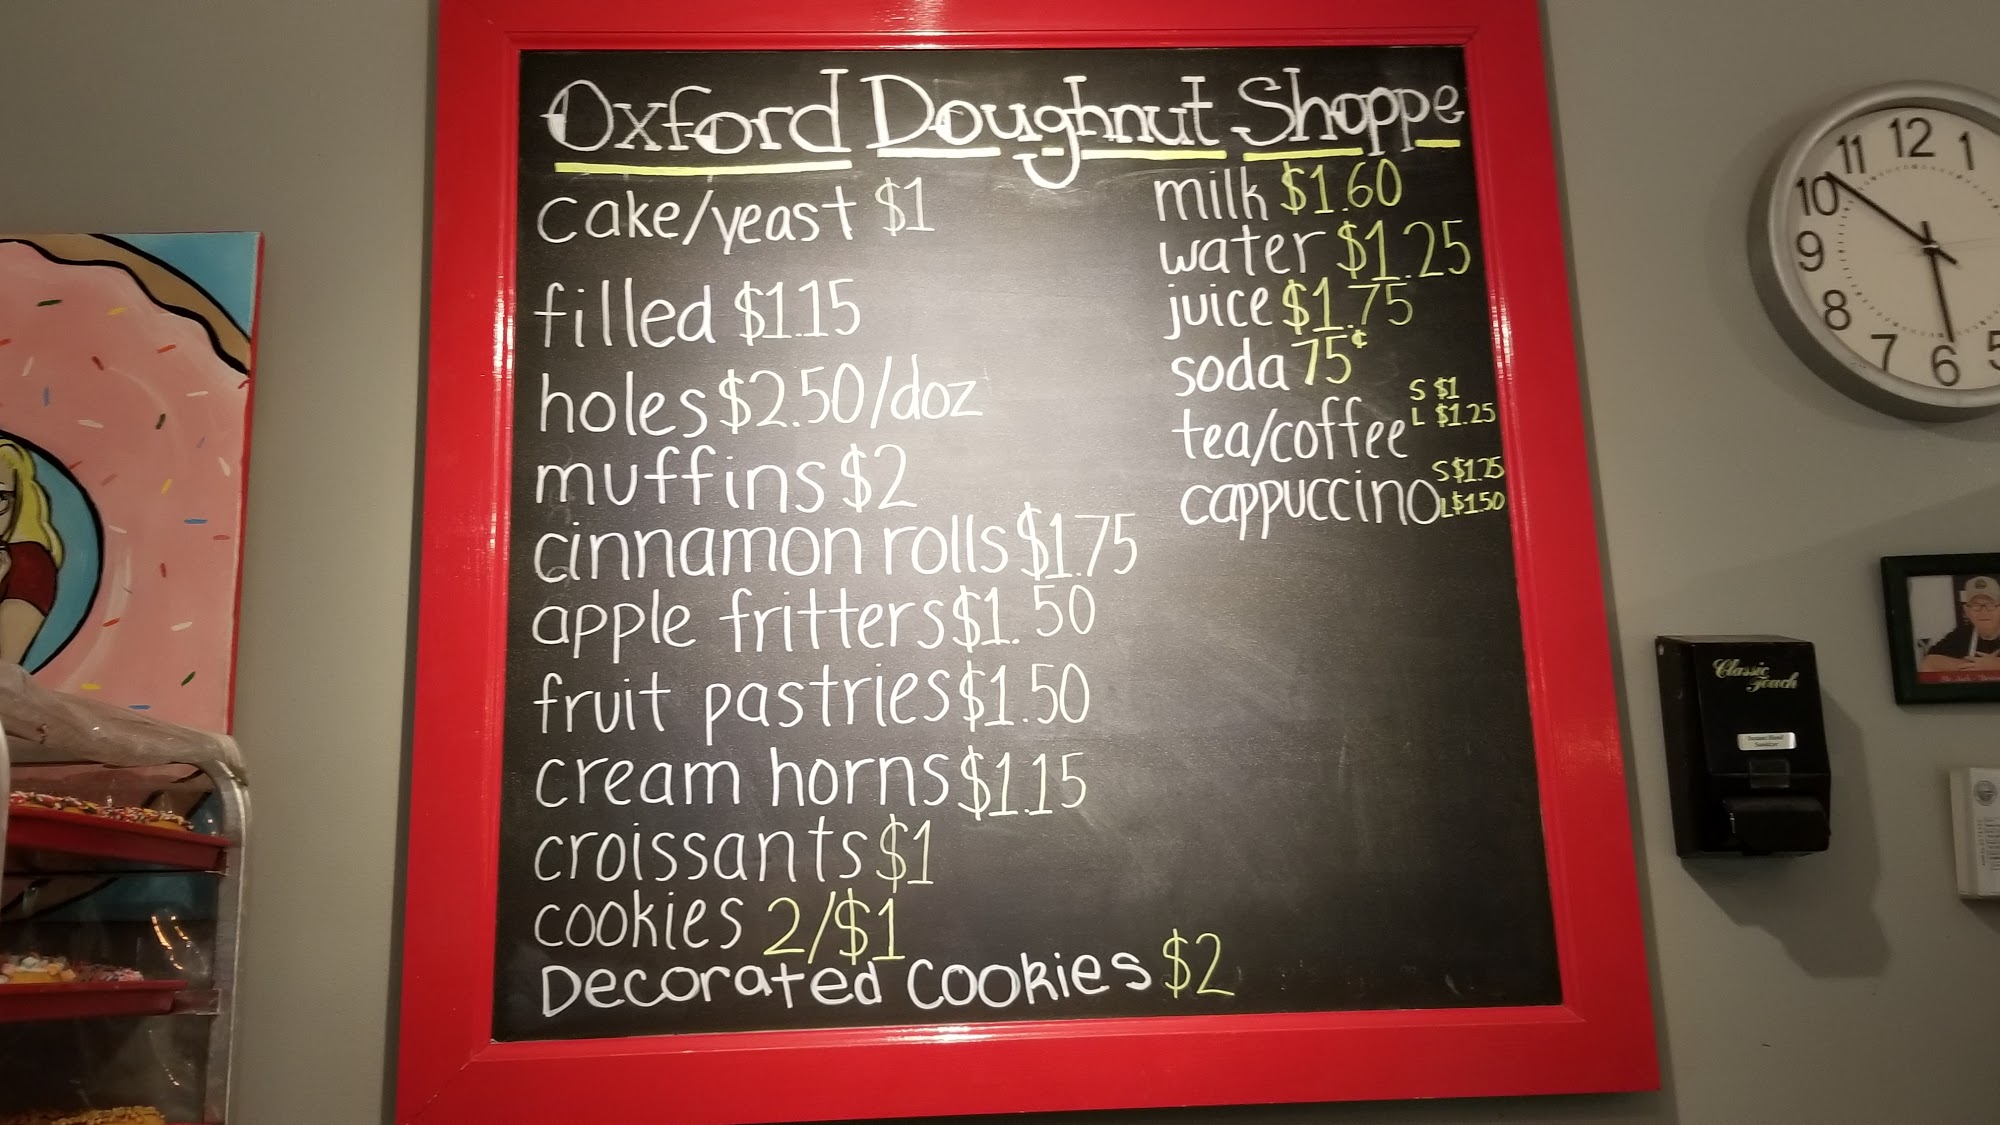 Oxford Doughnut Shoppe
cake/yeast $1
filled $1.15
holes $2.50/doz
muffins $2
cinnamon rolls $1.75
apple fritters $1.50
fruit pastries $1.50
cream horns $1.15
croissants $1
cookies 2/$1
Decorated Cookies $2
milk $1.60
water $1.25
juice $1.75
soda 75¢
tea/coffee S $1
L $1.25
cappuccino S $1.25
L $1.50
11 12 1
10
9
8
7 6 5
Classic
Touch
Instant Hand
Sanitizer